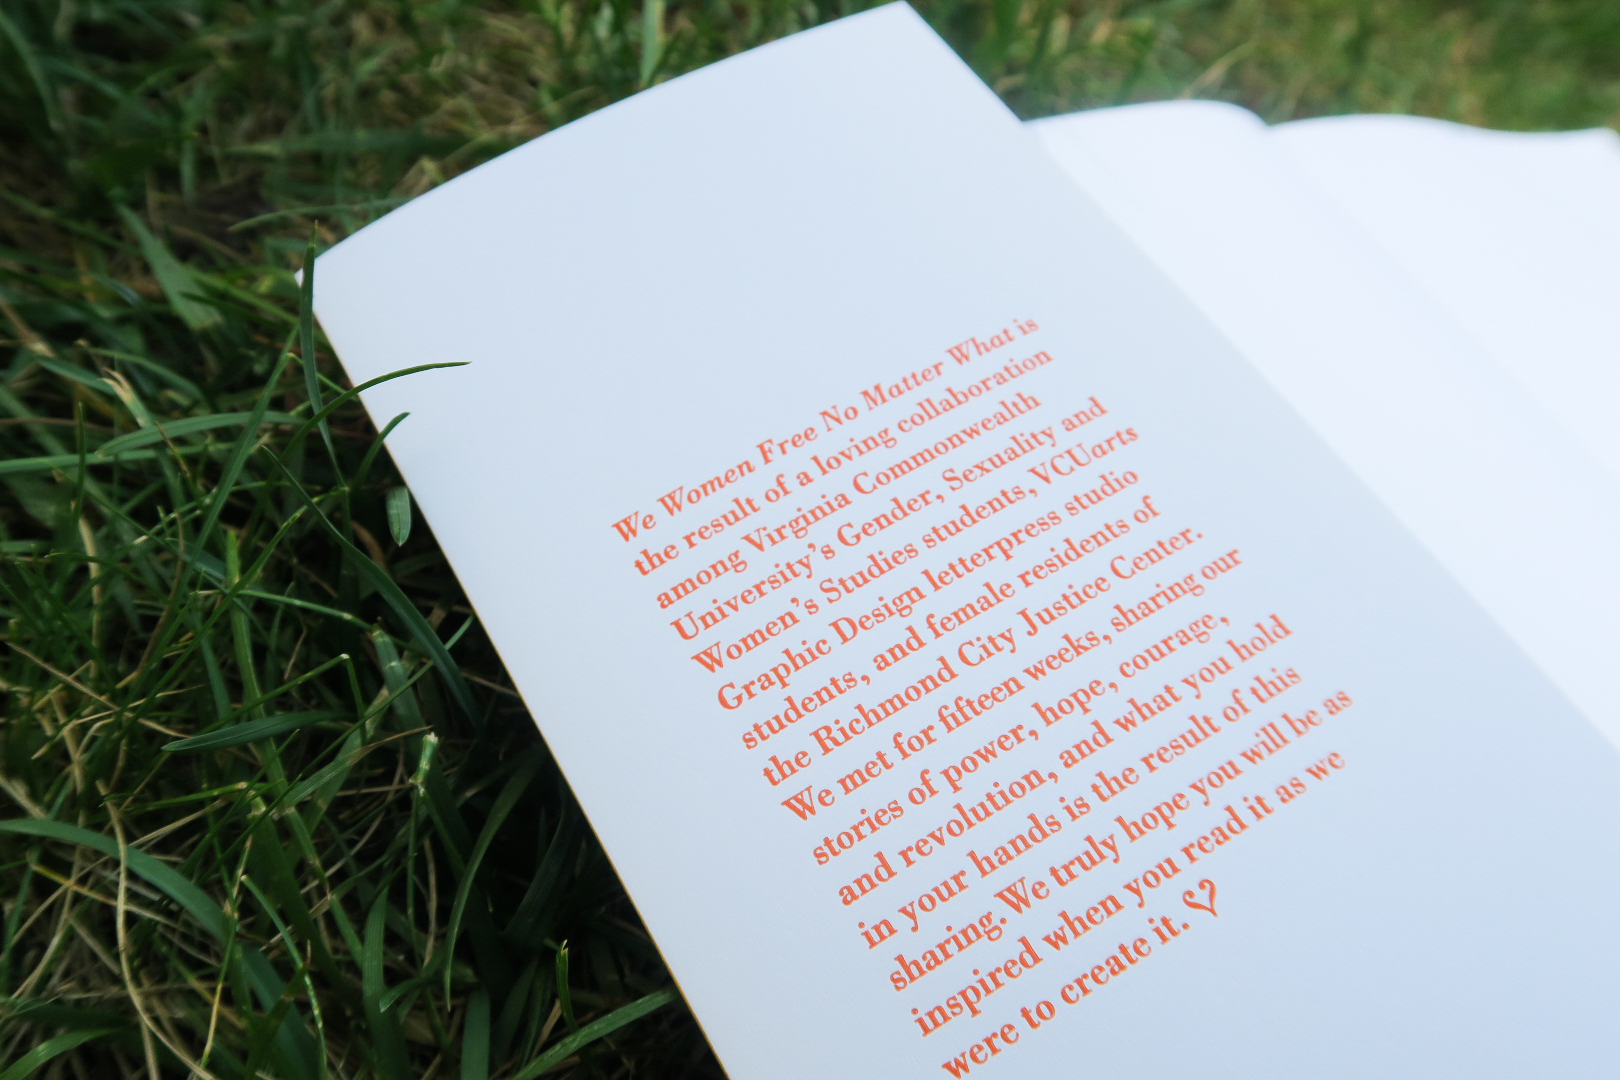 We Women Free No Matter What is
the result of a loving collaboration
among Virginia Commonwealth
University's Gender, Sexuality and
Women's Studies students, VCUarts
Graphic Design letterpress studio
students, and female residents of
the Richmond City Justice Center.
We met for fifteen weeks, sharing our
stories of power, hope, courage,
and revolution, and what you hold
in your hands is the result of this
sharing. We truly hope you will be as
inspired when you read it as we
were to create it.